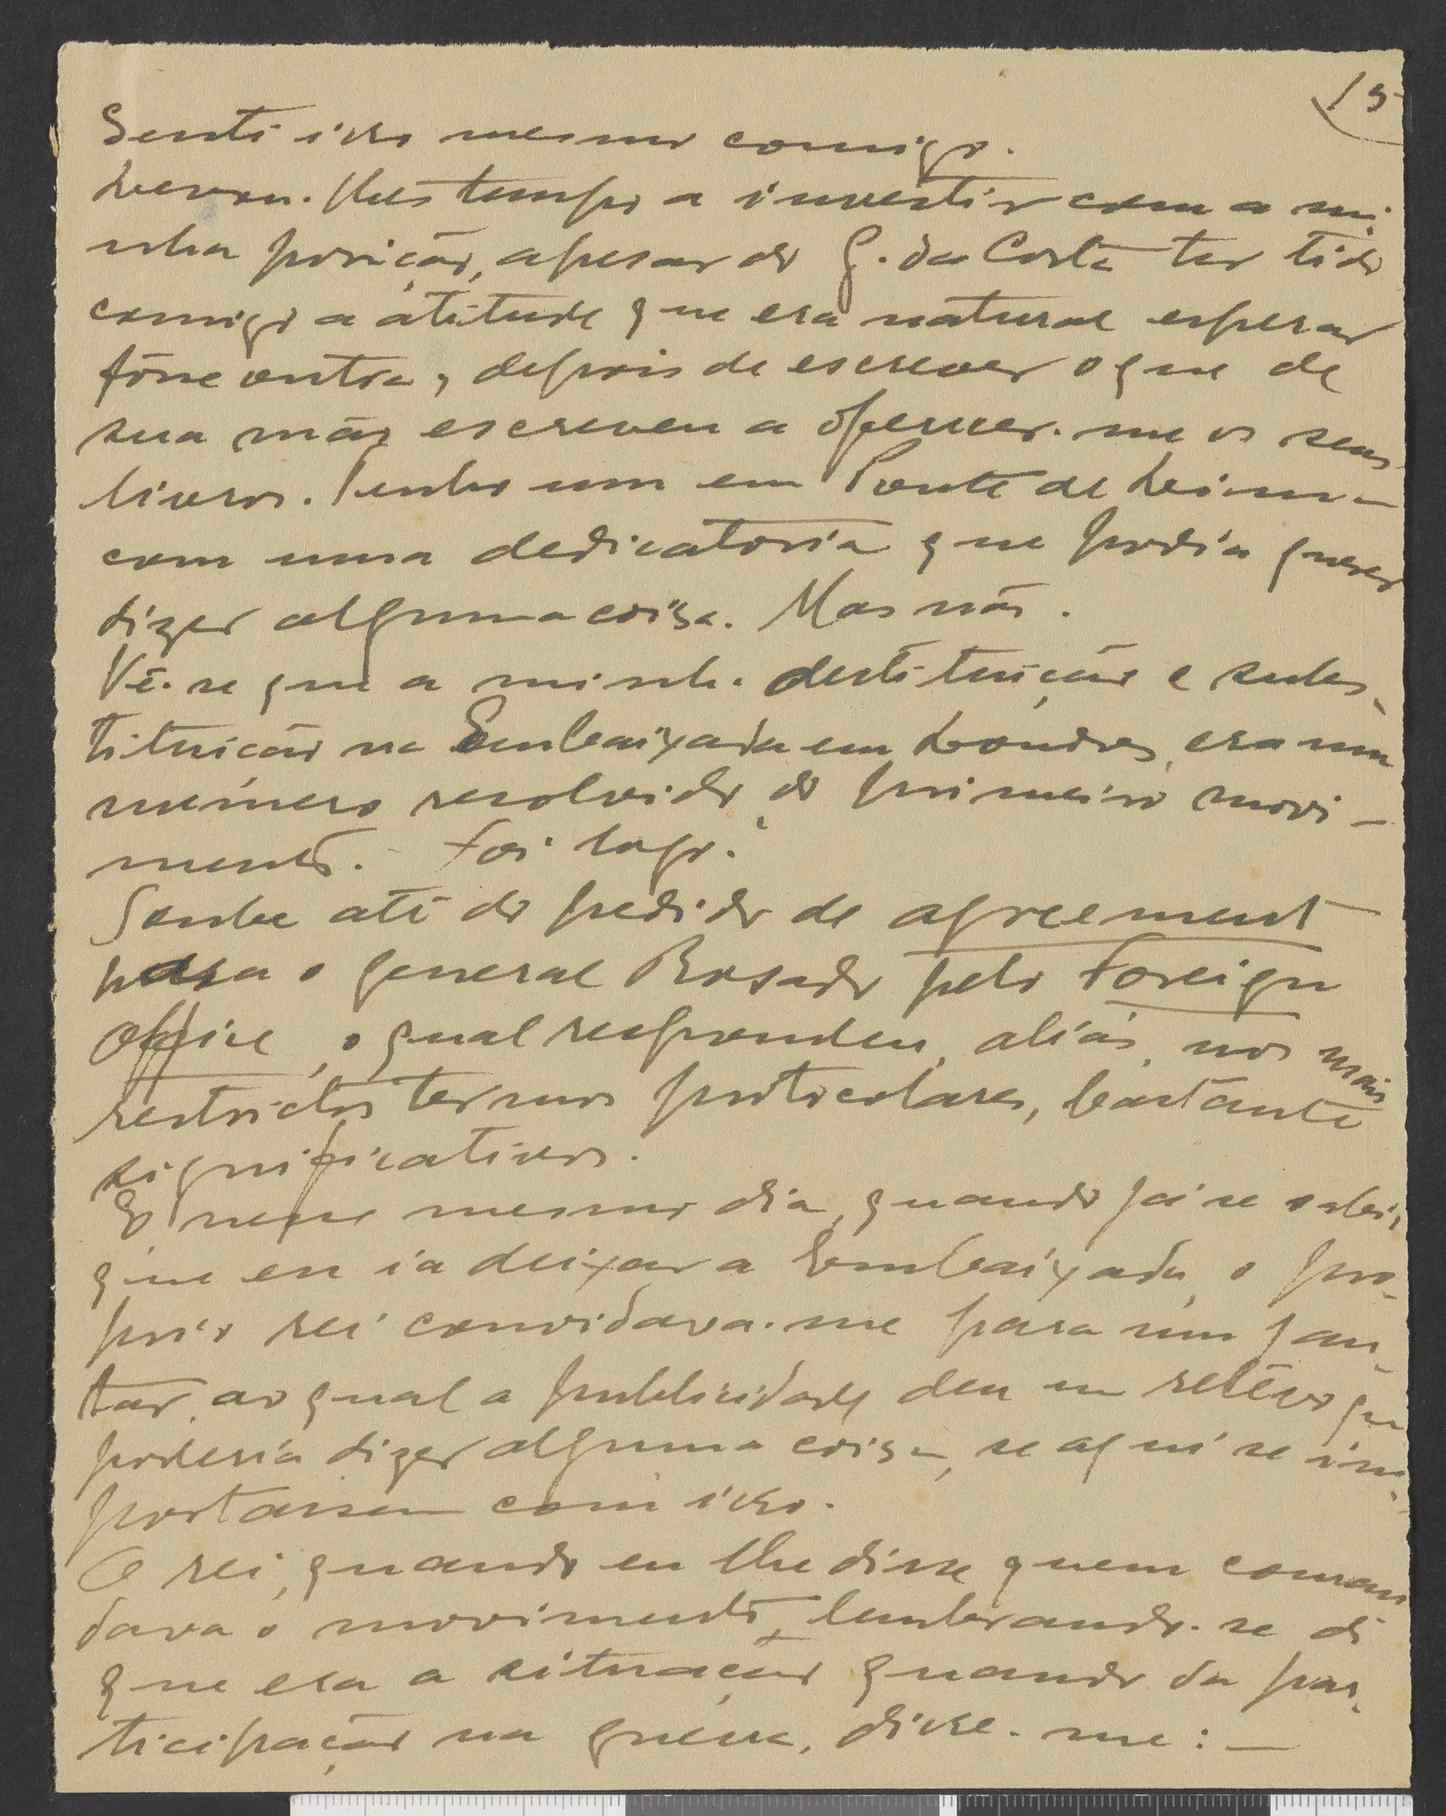 15
Senti isso mesmo comigo.
Levou-lhes tempo a investir com a mi-
nha posição, apesar do G. da Costa ter tido
comigo a atitude que era natural esperar
fôsse outra, depois de escrever o que de
sua mão escreveu a oferecer-me os seus
livros. Tenho um em Ponte de Lima
com uma dedicatoria que podia querer
dizer alguma coisa. Mas não.
Vê-se que a minha destituição e subs-
tituição na Embaixada em Londres, era um
numero resolvido do primeiro movi-
mento. - Foi logo.
Soube até do pedido de agreement
para o general Rosado pelo Foreign
Office, o qual respondeu, aliás, nos mais
restrictos termos protocolares, bastante
significativos.
E nesse mesmo dia, quando já se sabia
que eu ia deixar a Embaixada, o pro-
prio rei convidava-me para um jan-
tar, ao qual a publicidade deu um relêvo que
poderia dizer alguma coisa, se aqui se im-
portassem com isso.
O rei, quando eu lhe disse quem coman
dava o movimento, lembrando-se do
que era a situação quando da par-
ticipação na guerra, disse-me: -